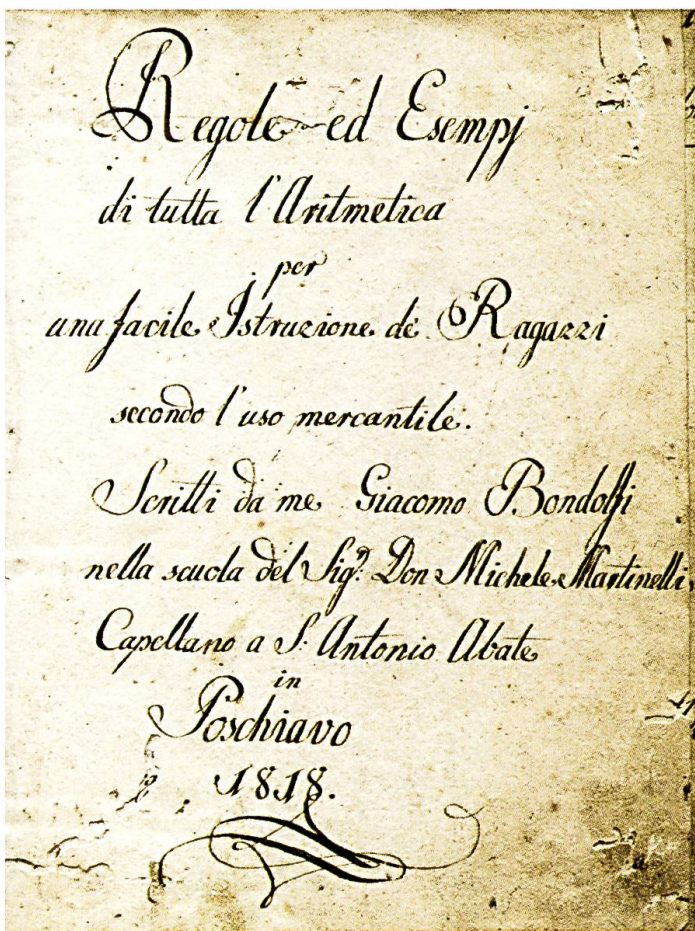 Regole ed Esempj
di tutta l'Aritmetica
per
una facile Istruzione de' Ragazzi
secondo l'uso mercantile.
Scritti da me Giacomo Bondolfi
nella scuola del Sigr. Don Michele Martinelli
Capellano a S. Antonio Abate
in
Poschiavo
1818.